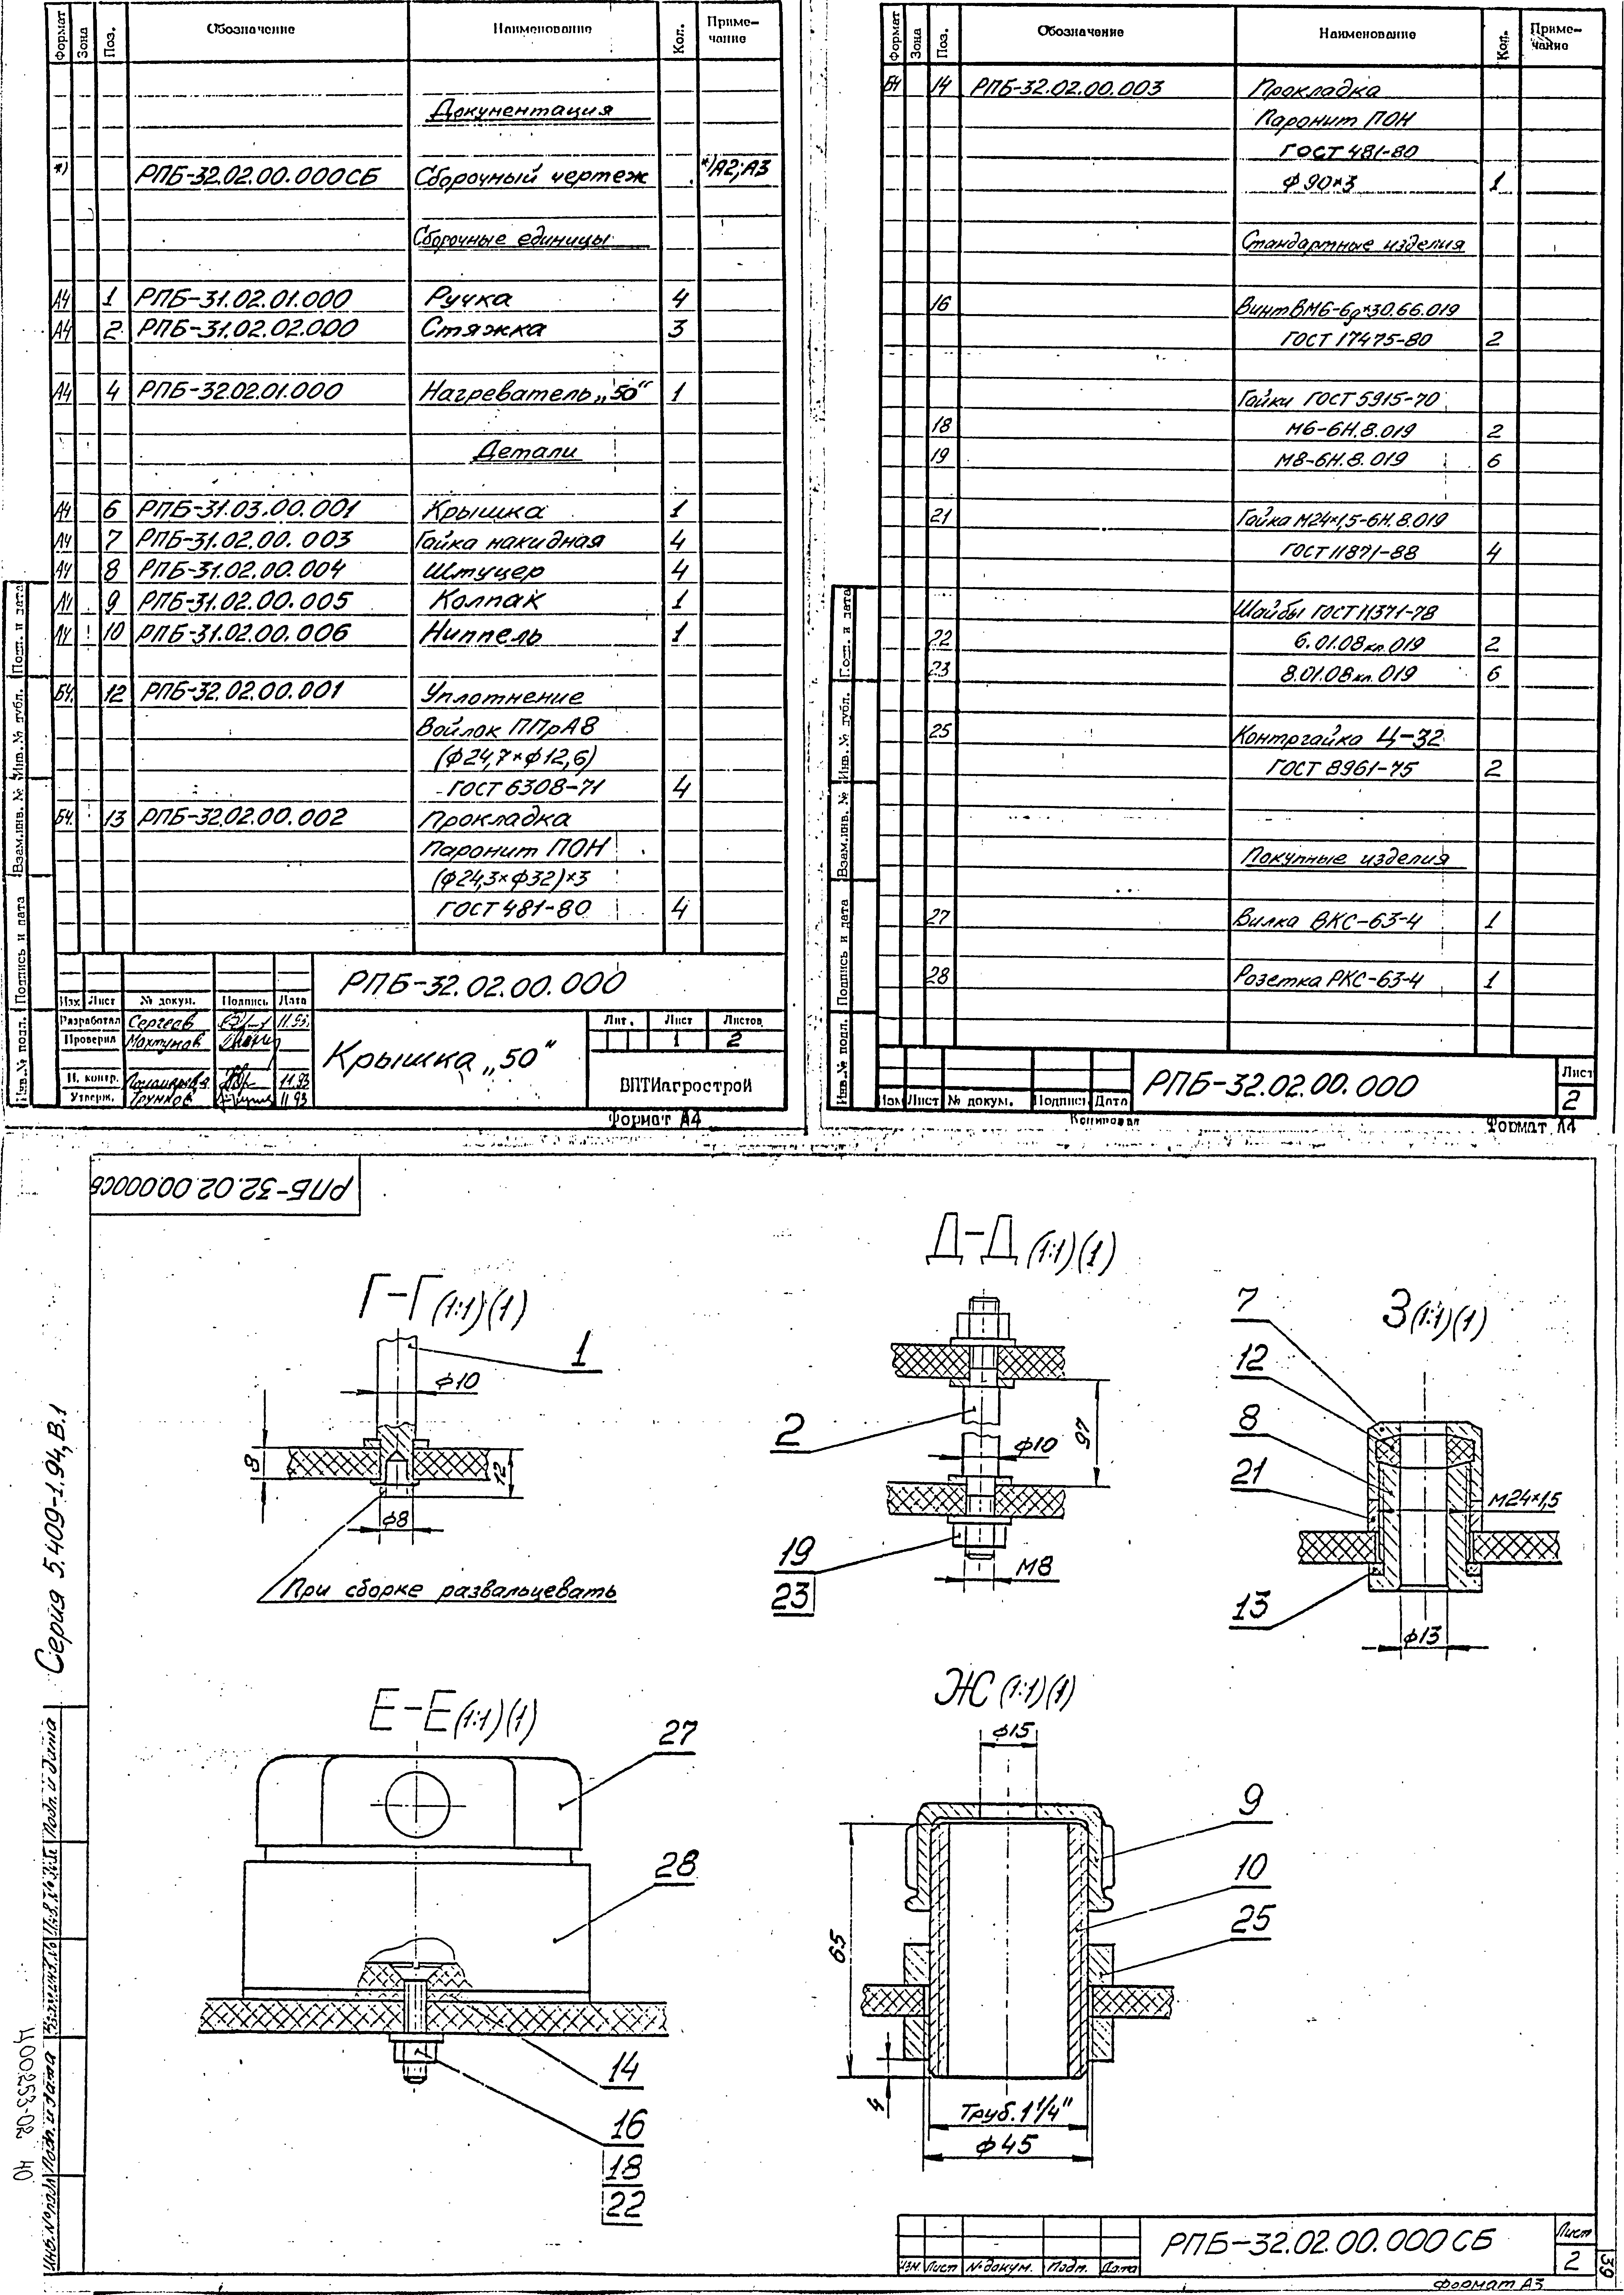 Формат Зона Поз. Обозначение Наименование Кол. Приме-
чание
Документация
*) РПБ-32.02.00.000СБ Сборочный чертеж *)А2;А3
Сборочные единицы
А4 1 РПБ-31.02.01.000 Ручка 4
А4 2 РПБ-31.02.02.000 Стяжка 3
А4 4 РПБ-32.02.01.000 Нагреватель „50“ 1
Детали
А4 6 РПБ-31.03.00.001 Крышка 1
А4 7 РПБ-31.02.00.003 Гайка накидная 4
А4 8 РПБ-31.02.00.004 Штуцер 4
А4 9 РПБ-31.02.00.005 Колпак 1
А4 10 РПБ-31.02.00.006 Ниппель 1
БЧ. 12 РПБ-32.02.00.001 Уплотнение
Войлок ППрА8
(ф24,7×ф12,6)
ГОСТ 6308-71 4
БЧ. 13 РПБ-32.02.00.002 Прокладка
Паронит ПОН
(ф24,3×ф32)×3
ГОСТ 481-80 4
Подп. и дата
Инв. № дубл.
Взам.инв. №
Подпись и дата
Инв.№ подл.
РПБ-32.02.00.000
Изм Лист № докум. Подпись Дата
Разработал Сергеев 11.93
Проверил Махтумов
Н. контр. 11.93
Утверж. Трунков 11.93
Крышка „50“
Лит. Лист Листов
1 2
ВПТИагрострой
Формат А4
Формат Зона Поз. Обозначение Наименование Кол. Приме-
чание
БЧ 14 РПБ-32.02.00.003 Прокладка
Паронит ПОН
ГОСТ 481-80
ф90×3 1
Стандартные изделия
16 Винт ВМ6-6g×30.66.019
ГОСТ 17475-80 2
Гайки ГОСТ 5915-70
18 М6-6Н.8.019 2
19 М8-6Н.8.019 6
21 Гайка М24×1,5-6Н.8.019
ГОСТ 11871-88 4
Шайбы ГОСТ 11371-78
22 6.01.08кп.019 2
23 8.01.08кп.019 6
25 Контргайка Ц-32
ГОСТ 8961-75 2
Покупные изделия
27 Вилка ВКС-63-4 1
28 Розетка РКС-63-4 1
Подп. и дата
Инв. № дубл.
Взам.инв. №
Подпись и дата
Инв.№ подл.
Изм Лист № докум. Подпись Дата
РПБ-32.02.00.000
Лист
2
Копировал
Формат А4
РПБ-32.02.00.000СБ
Г-Г (1:1)(1)
1
ф10
8
12
ф8
При сборке развальцевать
Д-Д (1:1)(1)
2
97
ф10
19
23
М8
З (1:1)(1)
7
12
8
21
М24×1,5
13
ф13
Е-Е (1:1)(1)
27
28
14
16
18
22
Ж (1:1)(1)
ф15
9
10
25
65
4
Труб. 1 1/4"
ф45
Серия 5.409-1.94, В.1
Подп. и дата
Инв.№ дубл.
Взам.инв.№
Подп. и дата
Инв.№ подл.
Ц00253-02 40
Изм. Лист № докум. Подп. Дата
РПБ-32.02.00.000СБ
Лист
2
39
Формат А3